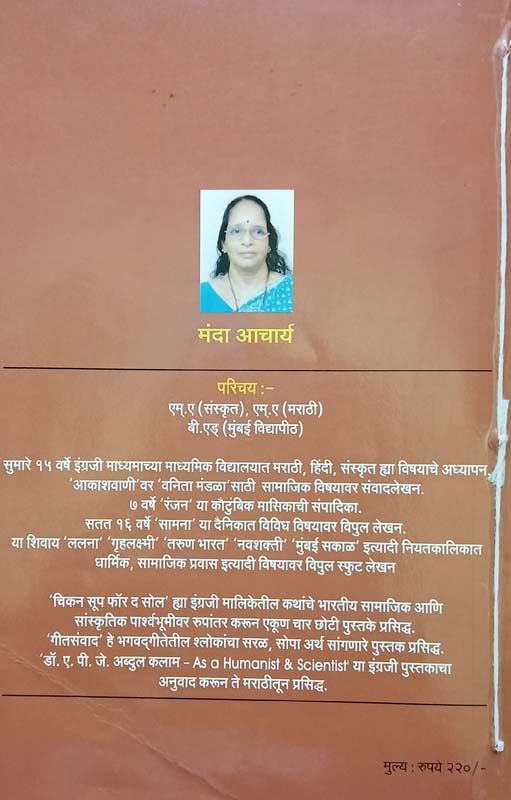 मंदा आचार्य
परिचय :–
एम्.ए (संस्कृत), एम्.ए (मराठी)
बी.एड् (मुंबई विद्यापीठ)
सुमारे १५ वर्षे इंग्रजी माध्यमाच्या माध्यमिक विद्यालयात मराठी, हिंदी, संस्कृत ह्या विषयाचे अध्यापन.
'आकाशवाणी'वर 'वनिता मंडळा'साठी सामाजिक विषयावर संवादलेखन.
७ वर्षे 'रंजन' या कौटुंबिक मासिकाची संपादिका.
सतत १६ वर्षे 'सामना' या दैनिकात विविध विषयावर विपुल लेखन.
या शिवाय 'ललना' 'गृहलक्ष्मी' 'तरुण भारत' 'नवशक्ती' 'मुंबई सकाळ' इत्यादी नियतकालिकात
धार्मिक, सामाजिक प्रवास इत्यादी विषयावर विपुल स्फुट लेखन
'चिकन सूप फॉर द सोल' ह्या इंग्रजी मालिकेतील कथांचे भारतीय सामाजिक आणि
सांस्कृतिक पार्श्वभूमीवर रुपांतर करून एकूण चार छोटी पुस्तके प्रसिद्ध.
'गीतसंवाद' हे भगवद्गीतेतील श्लोकांचा सरळ, सोपा अर्थ सांगणारे पुस्तक प्रसिद्ध.
'डॉ. ए. पी. जे. अब्दुल कलाम – As a Humanist & Scientist' या इंग्रजी पुस्तकाचा
अनुवाद करून ते मराठीतून प्रसिद्ध.
मुल्य : रुपये २२०/-